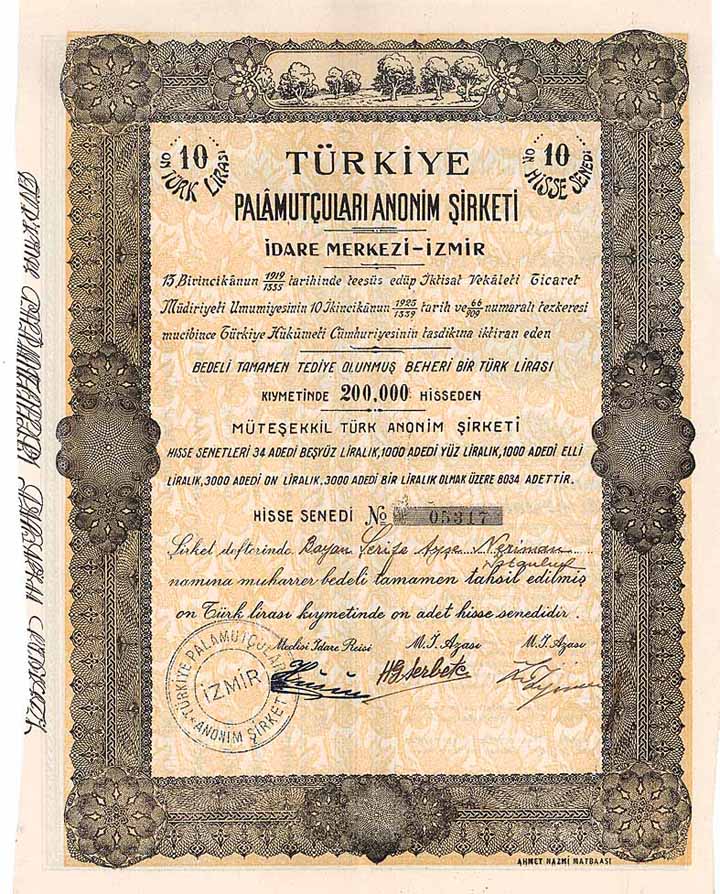 No 10
TÜRK LİRASI
No 10
HİSSE SENEDİ
TÜRKİYE
PALÂMUTÇULARI ANONİM ŞİRKETİ
İDARE MERKEZİ-İZMİR
13 Birincikânun 1919/1335 tarihinde teesüs edüp İktisat Vekâleti Ticaret
Müdiriyeti Umumiyesinin 10 İkincikânun 1923/1339 tarih ve 66/909 numaralı tezkeresi
mucibince Türkiye Hükûmeti Cümhuriyesinin tasdikına iktiran eden
BEDELİ TAMAMEN TEDİYE OLUNMUŞ BEHERİ BİR TÜRK LİRASI
KIYMETİNDE 200,000 HİSSEDEN
MÜTEŞEKKİL TÜRK ANONİM ŞİRKETİ
HİSSE SENETLERİ 34 ADEDİ BEŞYÜZ LİRALIK, 1000 ADEDİ YÜZ LİRALIK, 1000 ADEDİ ELLİ
LİRALIK, 3000 ADEDİ ON LİRALIK, 3000 ADEDİ BİR LİRALIK OLMAK ÜZERE 8034 ADETTİR.
HİSSE SENEDİ No 05317
Şirket defterinde Bayan Şerife Ayşe Neriman
namına muharrer bedeli tamamen tahsil edilmiş
on Türk lirası kıymetinde on adet hisse senedidir.
Meclisi İdare Reisi M.İ. Azası M.İ. Azası
TÜRKİYE PALAMUTÇULARI
İZMİR
ANONİM ŞİRKETİ
AHMET NAZMİ MATBAASI